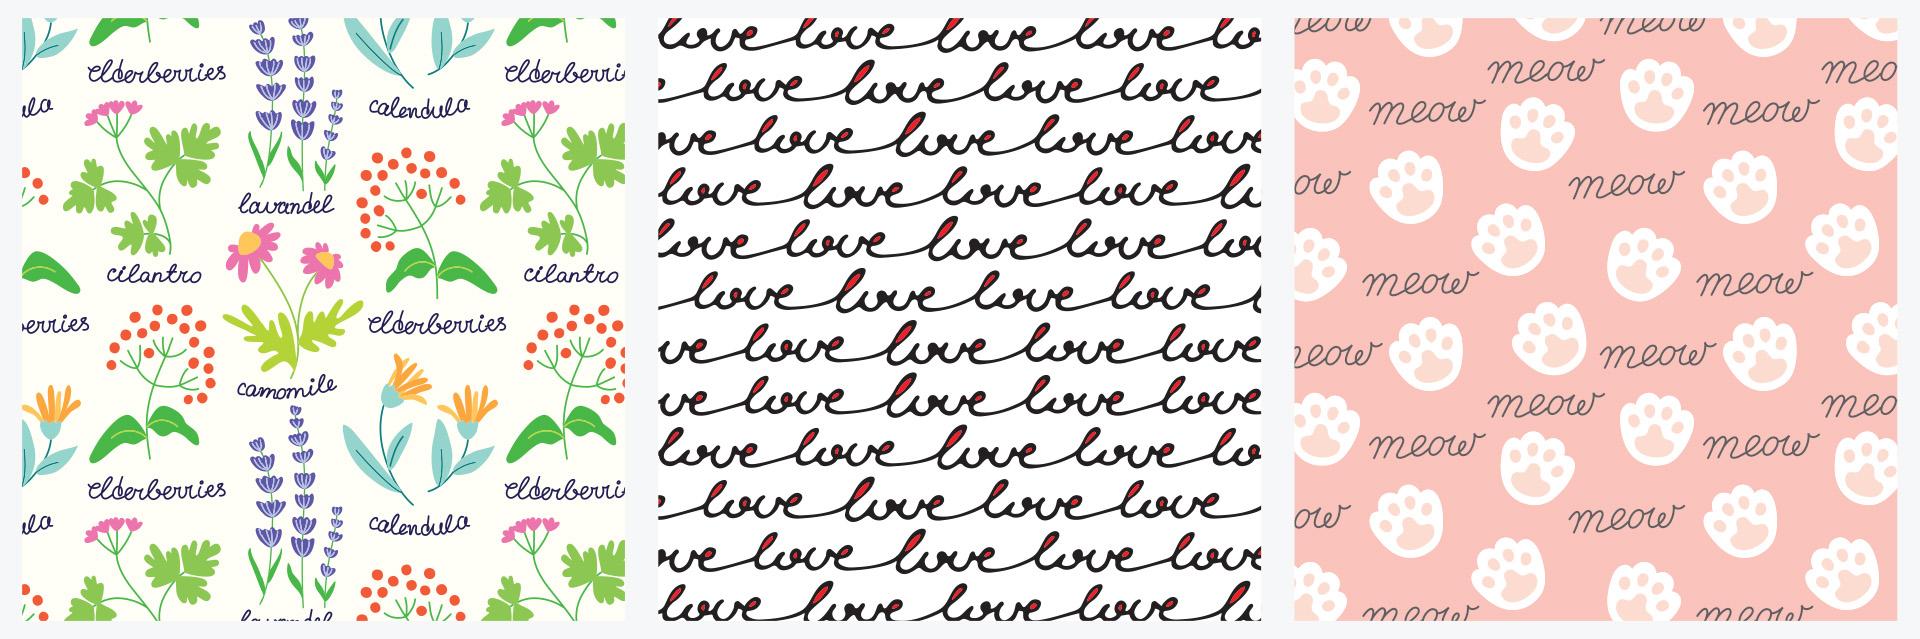 elderberries elderberri
ula calendula
lavandel
cilantro cilantro
erries elderberries
camomile
elderberries elderberri
ula calendula
lavandel
love love love love lo
love love love love
ve love love love love
love love love love lo
love love love love lo
love love love love
ve love love love love
ve love love love love
love love love love lo
love love love love
ve love love love love
love love love love lo
meow meow
meow meo
meow meow
ow meow
meow meow
eow meow
meow meo
meow meow
ow meow
meow meow